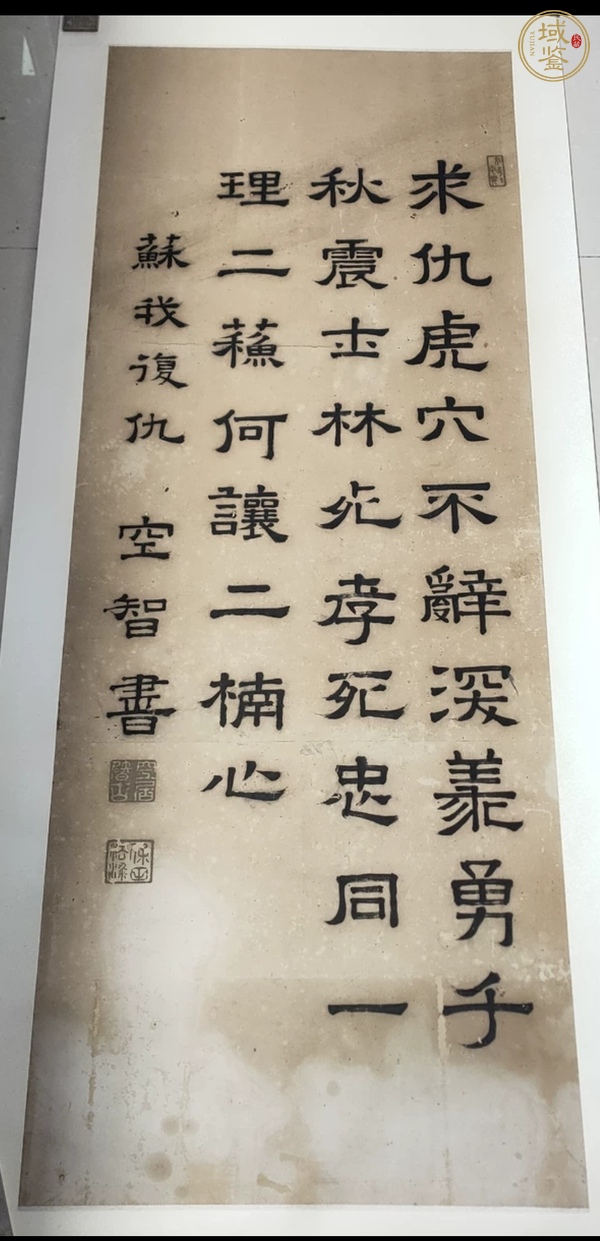 求仇虎穴不辭深義勇千
秋震士林死孝死忠同一
理二蘇何讓二楠心
蘇我復仇 空智書
域鉴
YUJIAN